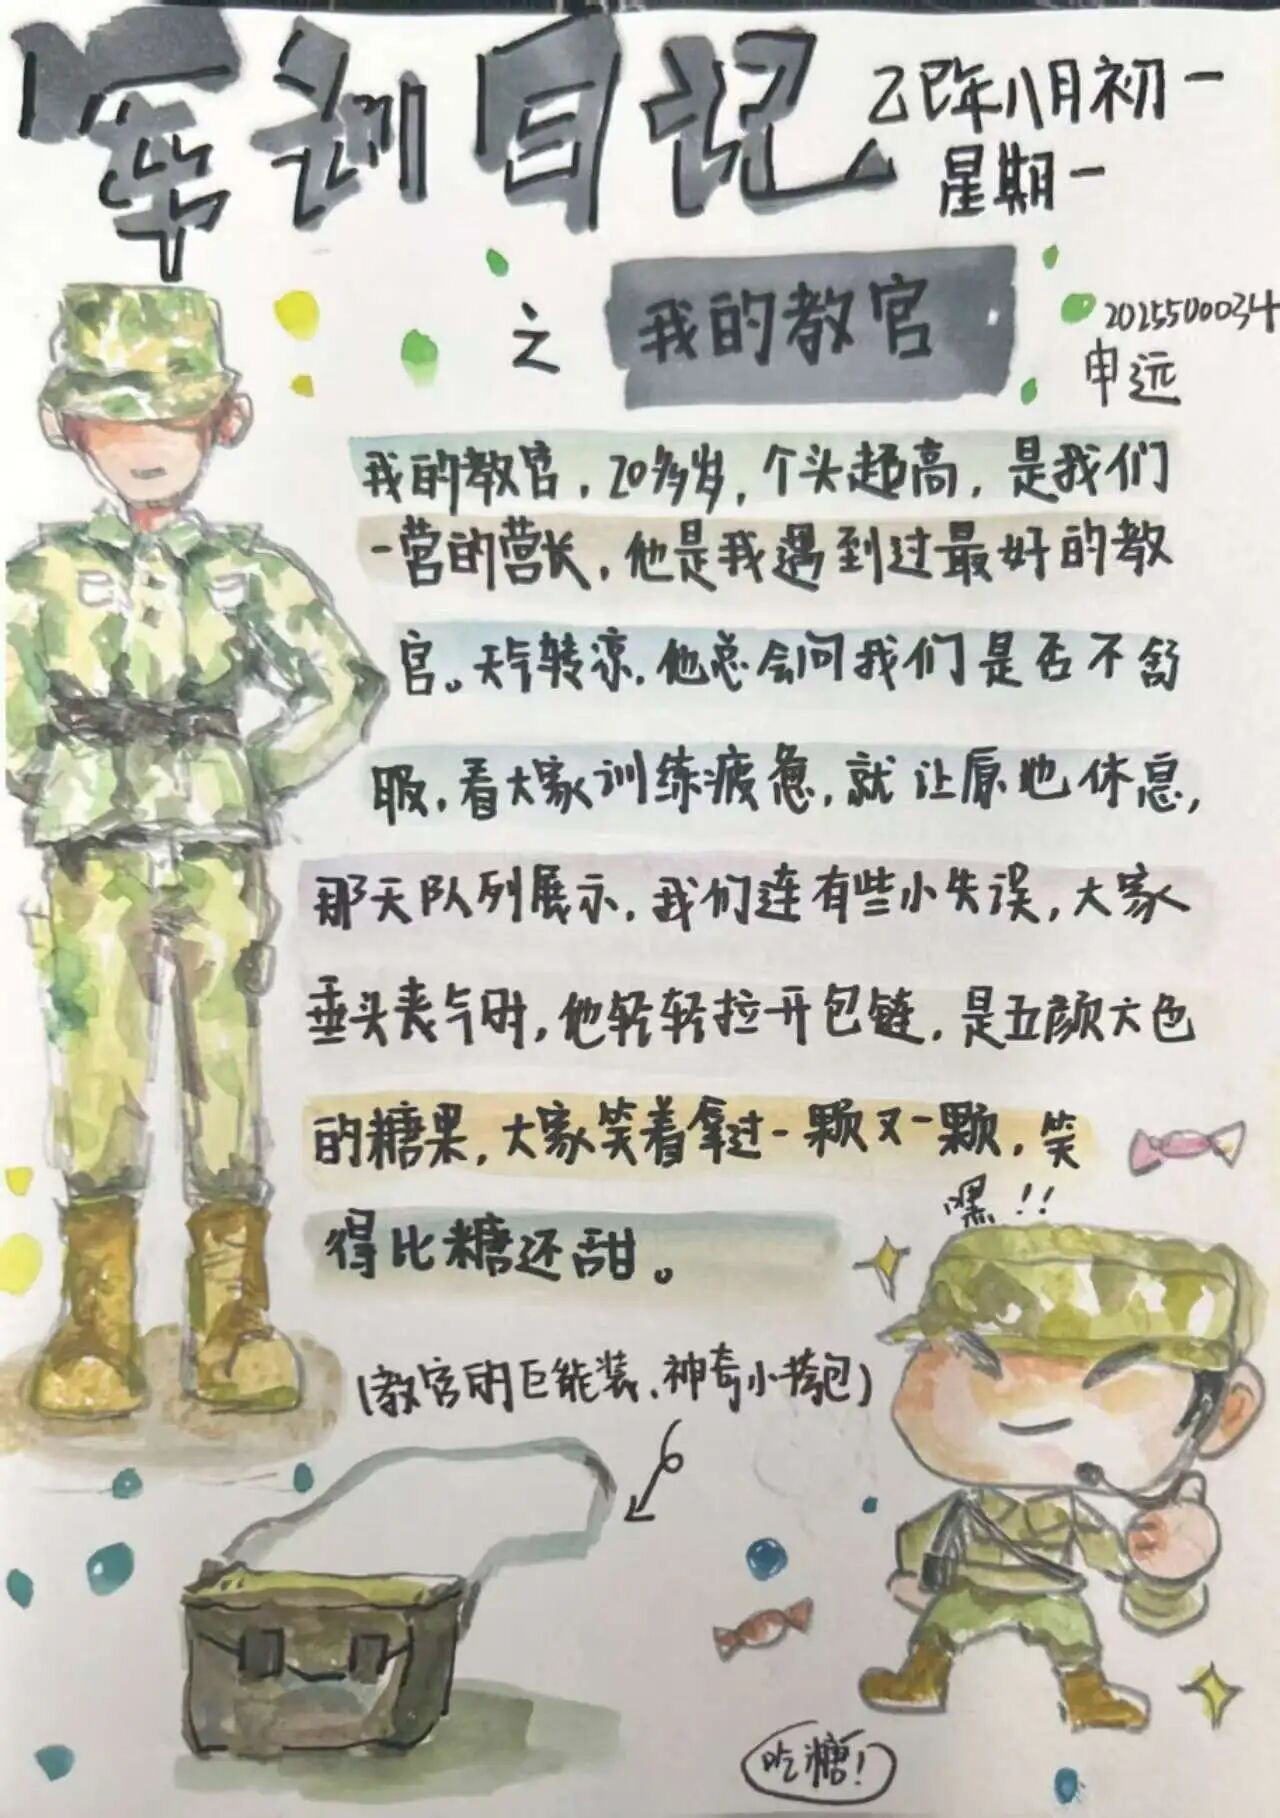 军训日记
乙巳年八月初一
星期一
之 我的教官
2025500034
申远
我的教官，20多岁，个头超高，是我们
一营的营长，他是我遇到过最好的教
官。天气转凉，他总会问我们是否不舒
服，看大家训练疲惫，就让原地休息，
那天队列展示，我们连有些小失误，大家
垂头丧气时，他轻轻拉开包链，是五颜六色
的糖果，大家笑着拿过一颗又一颗，笑
得比糖还甜。
嘿！！
（教官的巨能装，神奇小挎包）
吃糖！